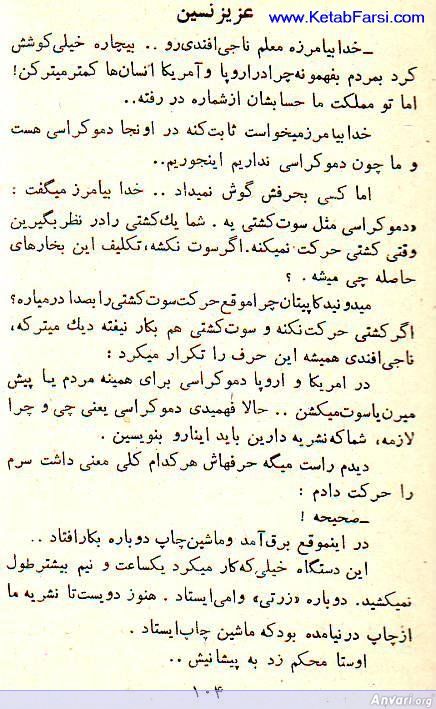 www.KetabFarsi.com
عزیز نسین
ـ خدا بیامرزه معلم ناجی‌افندی‌رو .. بیچاره خیلی کوشش
کرد بمردم بفهمونه چرا در اروپا و آمریکا انسان‌ها کمتر میترکن!
اما تو مملکت ما حسابشان از شماره در رفته..
خدا بیامرز میخواست ثابت کنه در اونجا دموکراسی هست
و ما چون دموکراسی نداریم اینجوریم..
اما کسی بحرفش گوش نمیداد .. خدا بیامرز میگفت :
«دموکراسی مثل سوت کشتی یه . شما یك کشتی را در نظر بگیرین
وقتی کشتی حرکت نمیکنه. اگر سوت نکشه، تکلیف این بخارهای
حاصله چی میشه . ؟
میدونید کاپیتان چرا موقع حرکت سوت کشتی را بصدا در میاره؟
اگر کشتی حرکت نکنه و سوت کشتی هم بکار نیفته دیك میترکه،
ناجی‌افندی همیشه این حرف را تکرار میکرد :
در امریکا و اروپا دموکراسی برای همینه مردم یا پیش
میرن یا سوت میکشن .. حالا فهمیدی دموکراسی یعنی چی و چرا
لازمه، شما که نشریه دارین باید اینارو بنویسین .
دیدم راست میگه حرفهاش هر کدام کلی معنی داشت سرم
را حرکت دادم :
ـ صحیحه !
در اینموقع برق آمد و ماشین چاپ دوباره بکار افتاد ..
این دستگاه خیلی که کار میکرد یکساعت و نیم بیشتر طول
نمیکشید. دوباره «زرتی» وامی‌ایستاد . هنوز دویست تا نشریه ما
از چاپ در نیامده بود که ماشین چاپ ایستاد .
اوستا محکم زد به پیشانیش ..
۱۰۴
Anvari.org